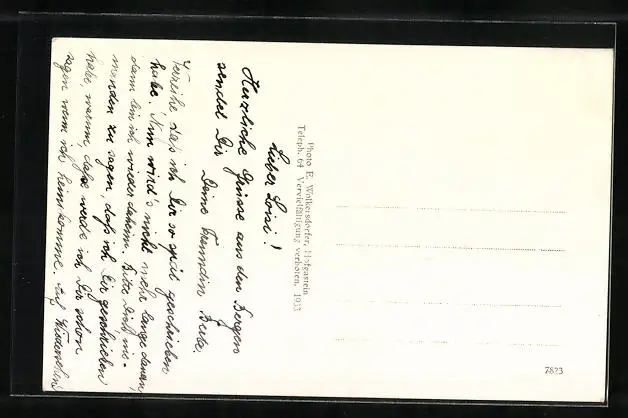 Lieber Loisi!
Herzliche Grüsse aus den Bergen
sendet Dir Deine Freundin
Verzeihe daß ich Dir so spät geschrieben
habe. Nun wird's nicht mehr lange dauern,
dann bin ich wieder daheim. Bitte Dich nie-
manden zu sagen, daß ich Dir geschrieben
habe, warum, daß werde ich Dir schon
sagen wenn ich heimkomme. Auf Wiedersehn!
Photo E. Wolkersdorfer, Hofgastein
Teleph. 64 Vervielfältigung verboten. 1933
7823